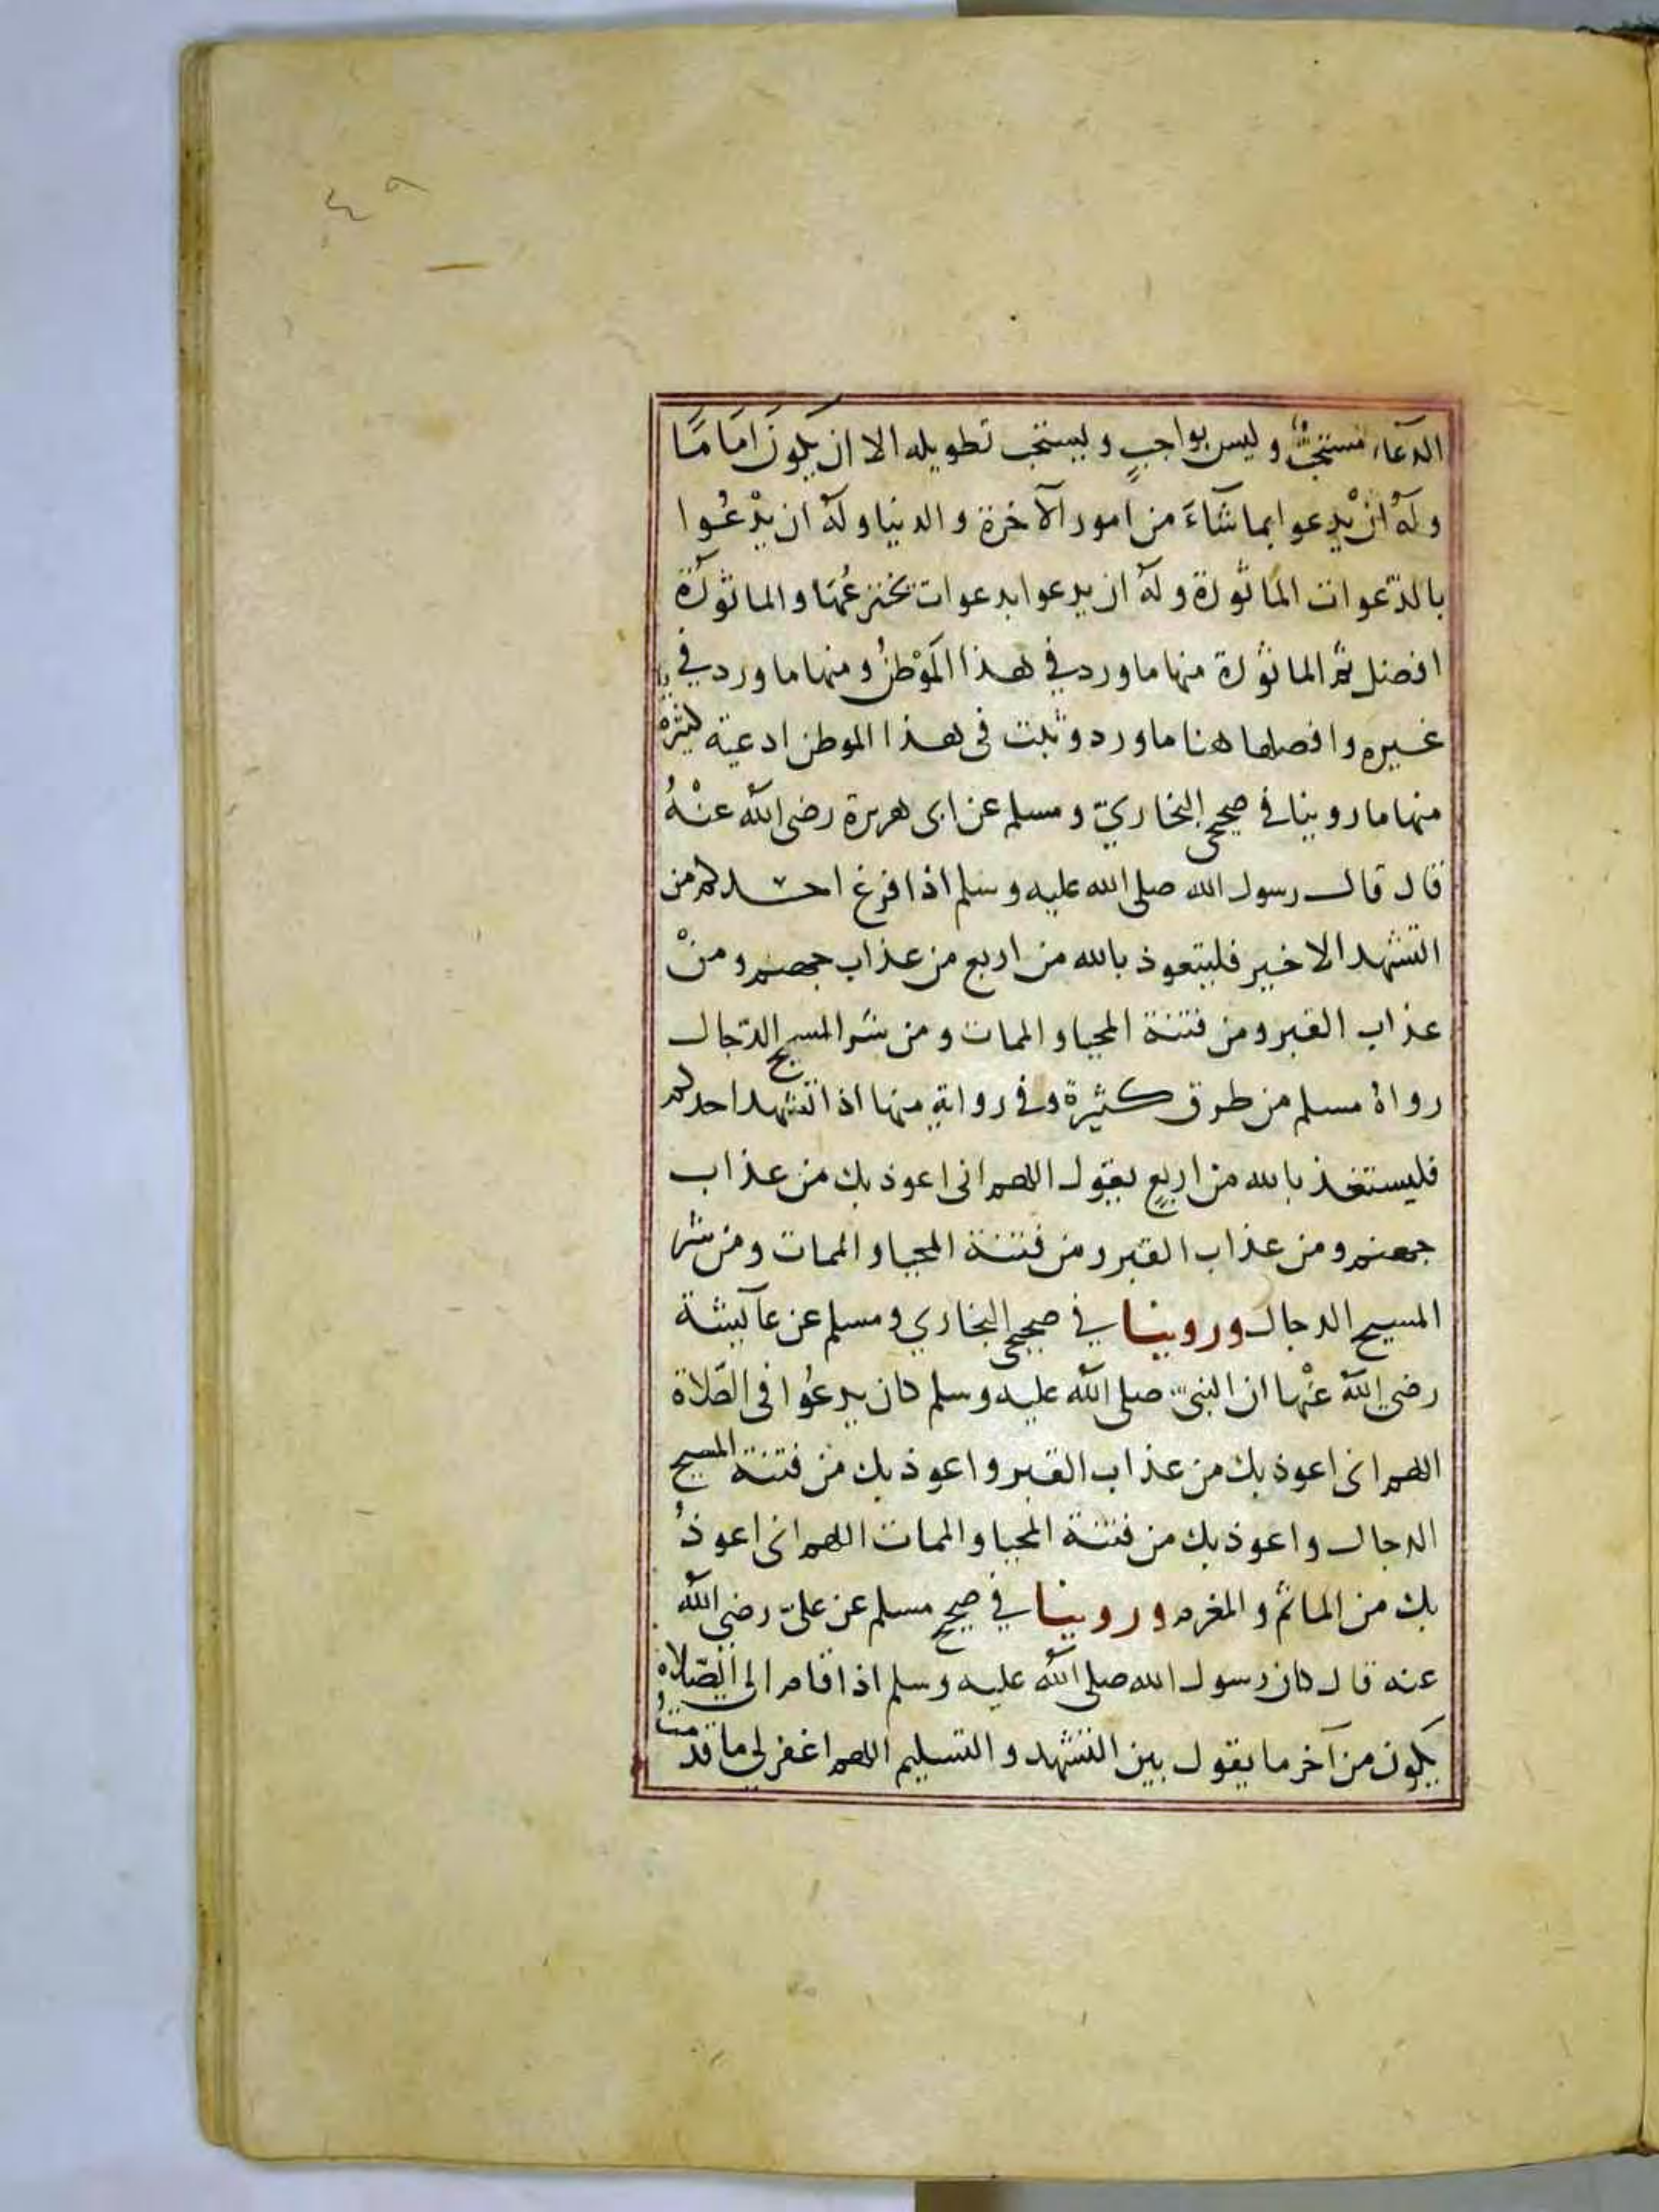 الدعآء مستحبٌّ وليس بواجبٍ ويستحب تطويله الا ان يكون امَامًا
ولهُ انْ يدعوا بما شآءَ من امور الآخرة والدنيا ولهُ ان يدْعُوا
بالدّعوات المأثورة ولهُ ان يدعوا بدعوات يخترعُهَا والماثورَة
افضل ثم الماثورة منها ما ورد في هذا المَوْطنُ ومنها ما ورد في
غيره وافضلها هنا ما ورد وثبت فى هذا الموطن ادعية كثيرة
منها ما روينا في صحيحى البخاريّ ومسلم عن ابى هريرة رضى الله عنْهُ
قال قال رسول الله صلى الله عليه وسلم اذا فرغ احدكم من
التشهد الاخير فليتعوذ بالله من اربع من عذاب جهنم ومنْ
عذاب القبر ومن فتنة المحيا والممات ومن شر المسيح الدّجال
رواهُ مسلم من طرق كثيرة وفي رواية منها اذا تشهد احدكم
فليستعذ بالله من اربعٍ يقول اللهم انى اعوذ بك من عذاب
جهنم ومن عذاب القبر ومن فتنة المحيا والممات ومن شر
المسيح الدجال وروينا في صحيحى البخاري ومسلم عن عآيشة
رضى الله عنْها ان النبىّ صلى الله عليه وسلم كان يدعُوا فى الصّلاة
اللهم انى اعوذ بك من عذاب القبر واعوذ بك من فتنة المسيح
الدجال واعوذ بك من فتنة المحيا والممات اللهم انى اعوذُ
بك من الماثم والمغرم وروينا في صحيح مسلم عن علىّ رضى الله
عنه قال كان رسول الله صلى الله عليه وسلم اذا قام الى الصّلاة
يكون من آخر ما يقول بين التشهد والتسليم اللهم اغفر لي ما قدمتُ